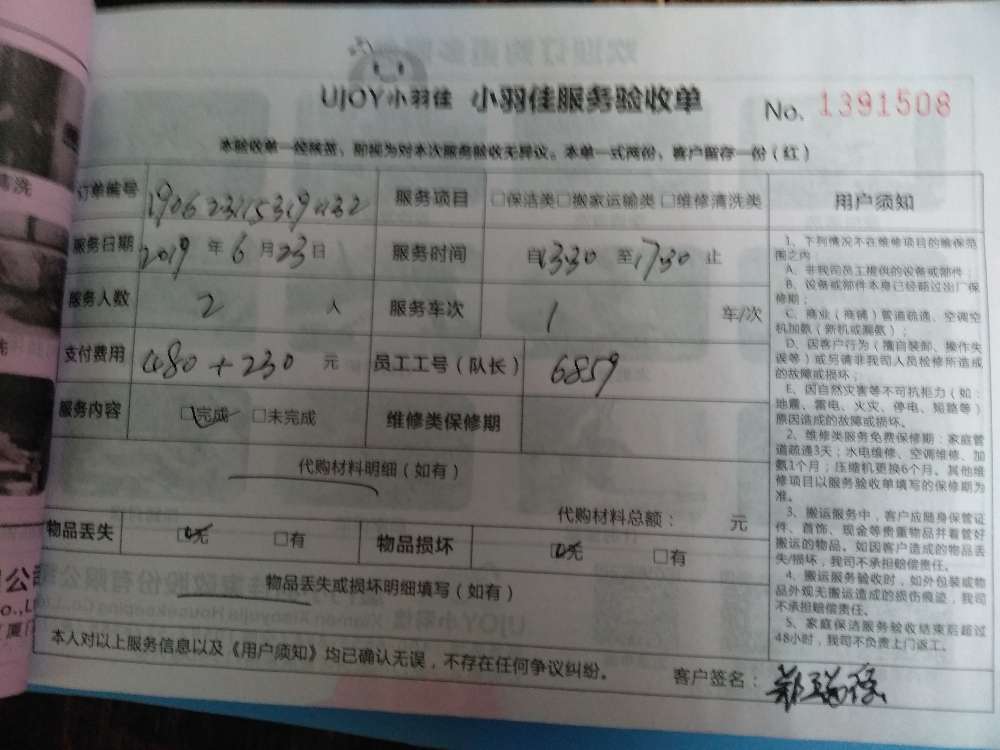 UJOY小羽佳 小羽佳服务验收单 No. 1391508
本验收单一经核签，即视为对本次服务验收无异议。本单一式两份，客户留存一份（红）
订单编号 服务项目 □保洁类□搬家运输类□维修清洗类
服务日期 2019 年 6 月 23 日 服务时间 自 1330 至 1730 止
服务人数 2 人 服务车次 1 车/次
支付费用 480+230 元 员工工号（队长） 6859
服务内容 □完成 □未完成 维修类保修期
代购材料明细（如有）
代购材料总额： 元
物品丢失 □无 □有 物品损坏 □无 □有
物品丢失或损坏明细填写（如有）
本人对以上服务信息以及《用户须知》均已确认无误，不存在任何争议纠纷。
客户签名：
用户须知
1、下列情况不在维修项目的维保范
围之内：
A、非我司员工提供的设备或部件；
B、设备或部件本身已经超过出厂保
修期；
C、商业（商铺）管道疏通、空调空
机加氨（新机或漏氨）；
D、因客户行为（擅自装卸、操作失
误等）或另请非我司人员检修所造成
的故障或损坏；
E、因自然灾害等不可抗拒力（如：
地震、雷电、火灾、停电、短路等）
原因造成的故障或损坏。
2、维修类服务免费保修期：家庭管
道疏通3天；水电维修、空调维修、加
氨1个月；压缩机更换6个月。其他维
修项目以服务验收单填写的保修期为
准。
3、搬运服务中，客户应随身保管证
件、首饰、现金等贵重物品并看管好
搬运的物品。如因客户造成的物品丢
失/损坏，我司不承担赔偿责任。
4、搬运服务验收时，如外包装或物
品外观无搬运造成的损伤痕迹，我司
不承担赔偿责任。
5、家庭保洁服务验收结束后超过
48小时，我司不负责上门返工。